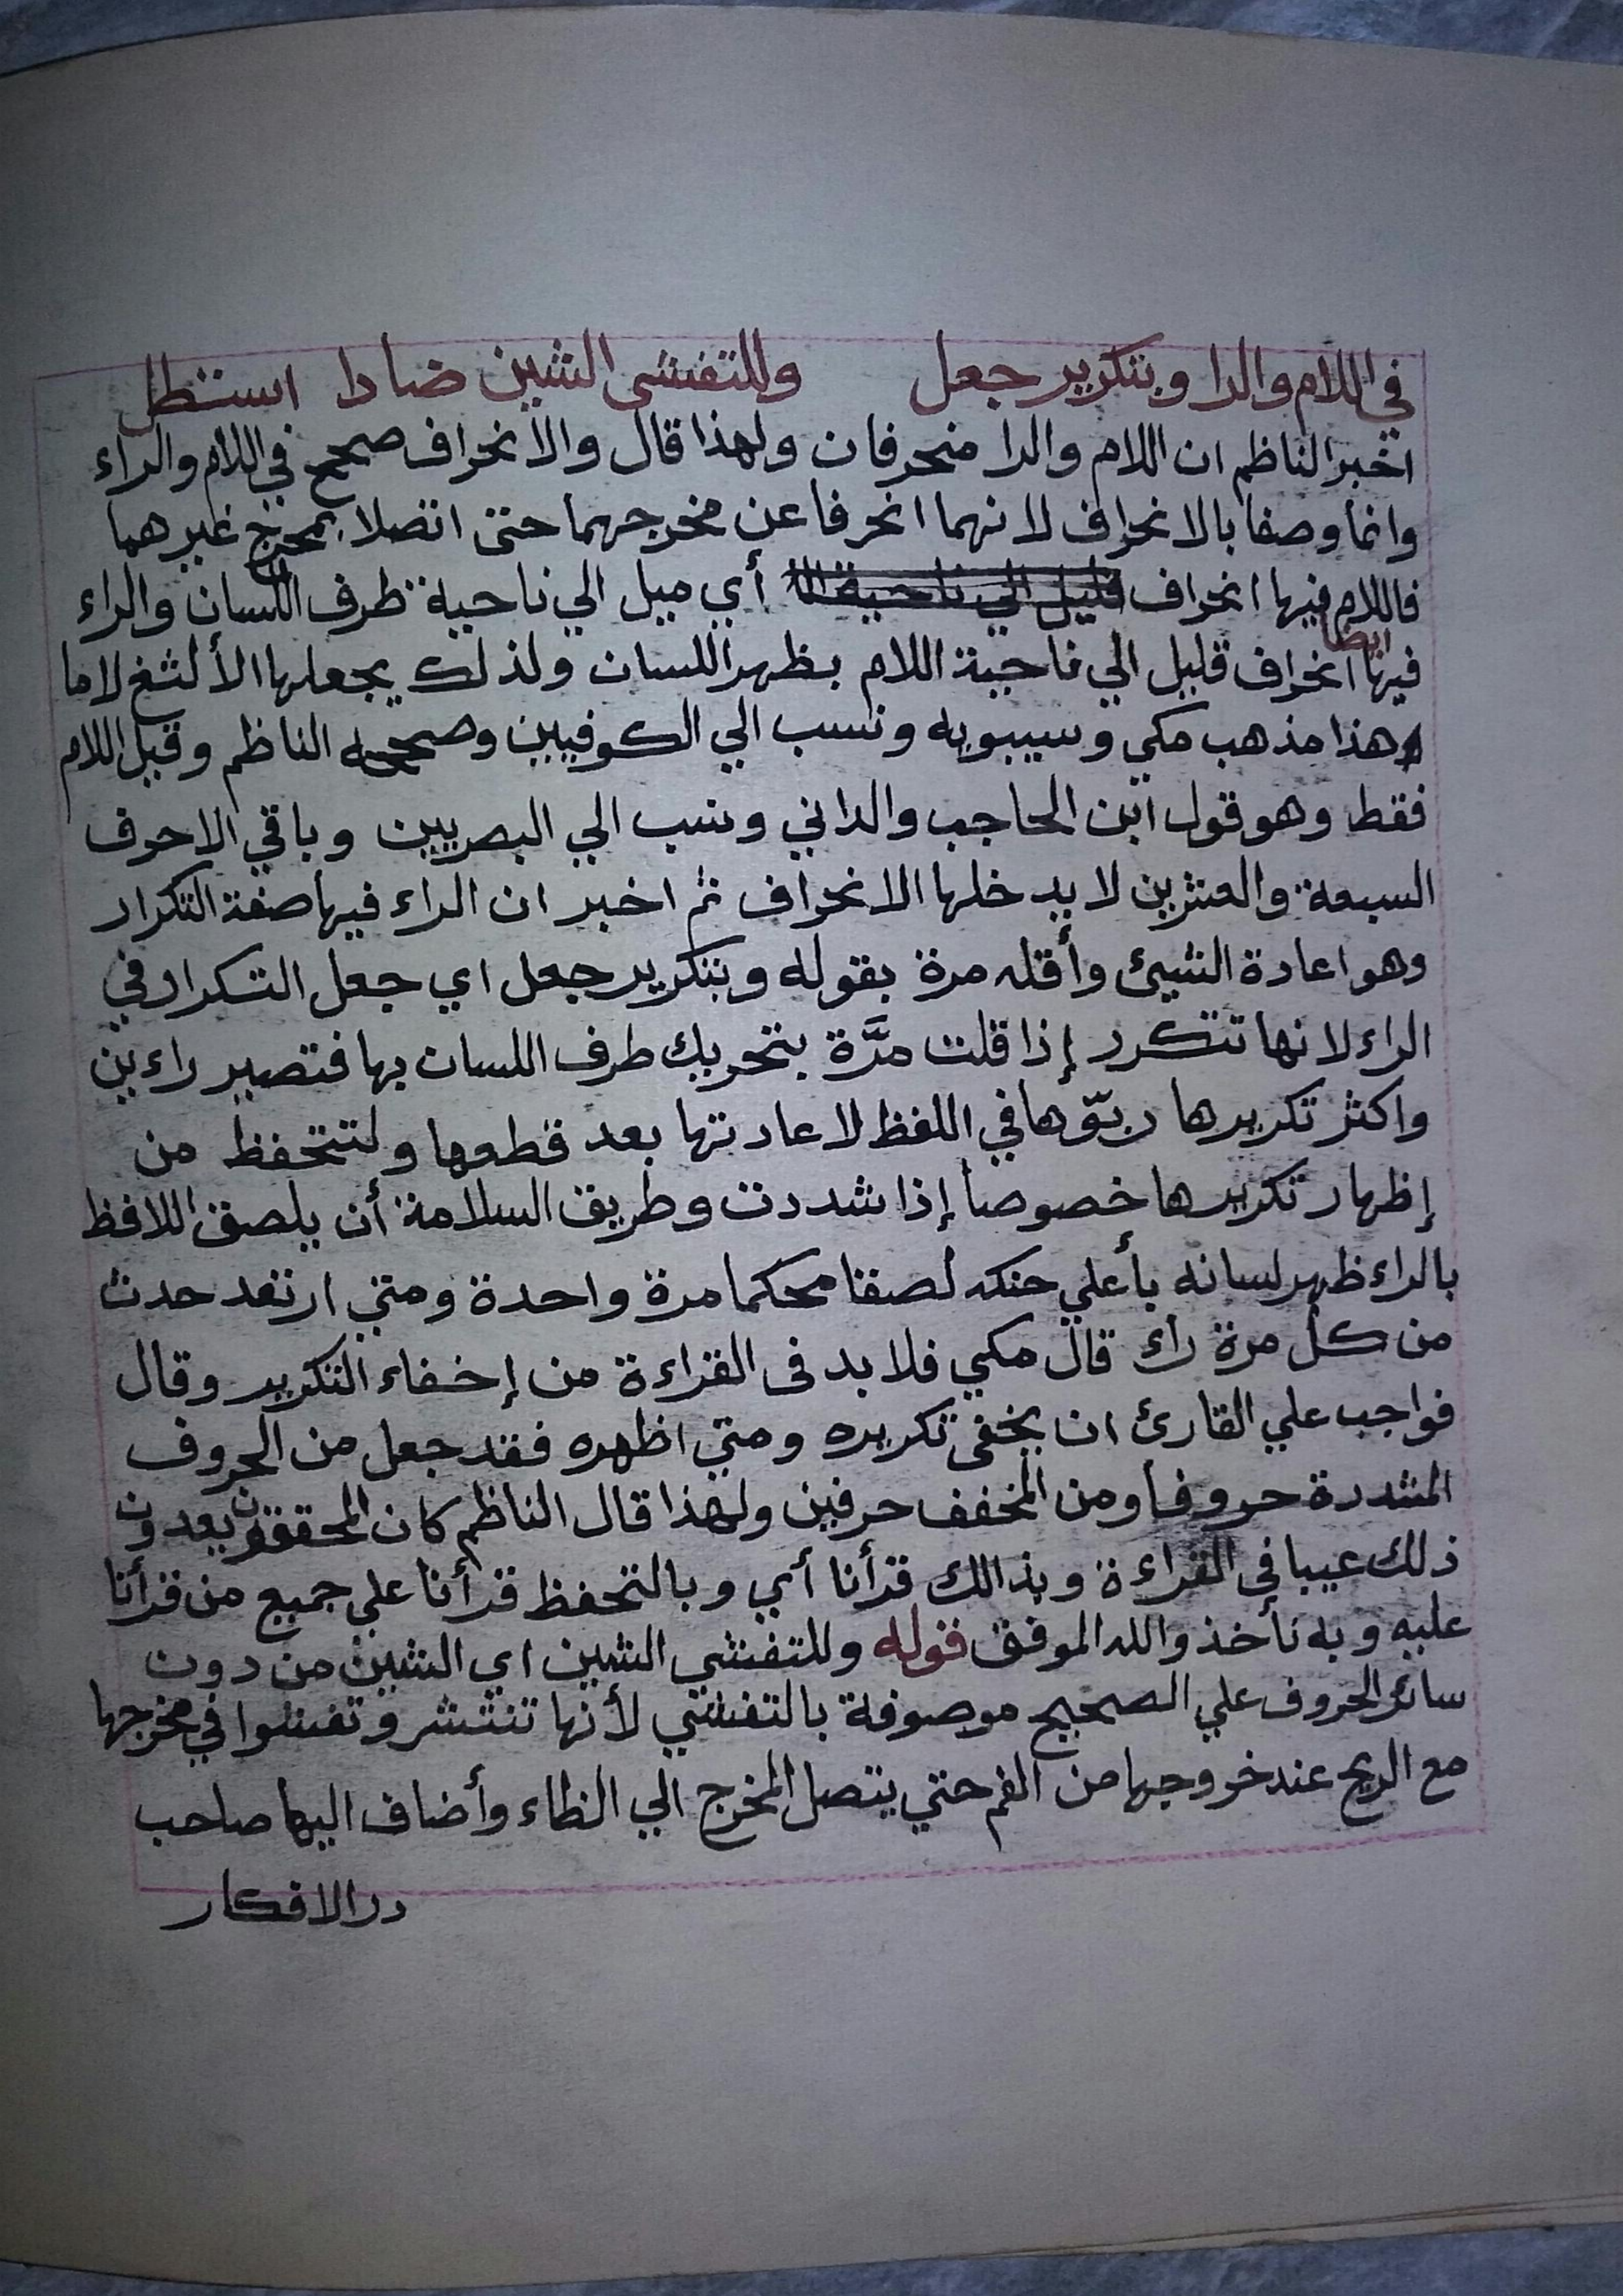 في اللام والرا وبتكرير جعل وللتفشى الشين ضادا استطل
اخبر الناظم ان اللام والرا منحرفان ولهذا قال والانحراف صحح في اللام والراء
وانما وصفا بالانحراف لانهما انحرفا عن مخرجهما حتى اتصلا بمخرج غيرهما
فاللام فيها انحراف قليل الي ناحية اللا أي ميل الي ناحية طرف اللسان والراء
فيها ايضا انحراف قليل الي ناحية اللام بظهر اللسان ولذلك يجعلها الألثغ لاما
هذا مذهب مكي وسيبويه ونسب الي الكوفيين وصححه الناظم وقيل اللام
فقط وهو قول ابن الحاجب والداني ونسب الي البصريين وباقي الاحرف
السبعة والعشرين لا يدخلها الانحراف ثم اخبر ان الراء فيها صفة التكرار
وهو اعادة الشيئ وأقله مرة بقوله وبتكرير جعل اي جعل التكرار في
الراء لانها تتكرر إذا قلت مرَّة بتحريك طرف اللسان بها فتصير راءين
واكثر تكريرها ربوّها في اللفظ لاعادتها بعد قطعها ولتتحفظ من
إظهار تكريرها خصوصا إذا شددت وطريق السلامة أن يلصق اللافظ
بالراء ظهر لسانه بأعلي حنكه لصقا محكما مرة واحدة ومتي ارتعد حدث
من كل مرة راء قال مكي فلا بد فى القراءة من إخفاء التكرير وقال
فواجب علي القارئ ان يخفى تكريره ومتي اظهره فقد جعل من الحروف
المشددة حروفا ومن المخفف حرفين ولهذا قال الناظم كان المحققون يعدون
ذلك عيبا في القراءة وبذالك قرأنا أي وبالتحفظ قرأنا علي جميع من قرأنا
عليه وبه نأخذ والله الموفق قوله وللتفشي الشين اي الشين من دون
سائر الحروف علي الصحيح موصوفة بالتفشي لأنها تنتشر وتفشوا في مخرجها
مع الريح عند خروجها من الفم حتي يتصل المخرج الي الظاء وأضاف اليها صاحب
درالافكار